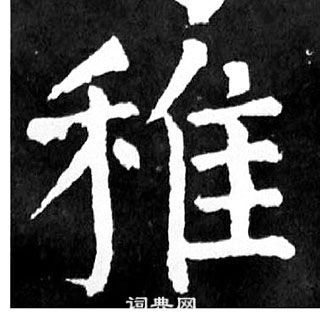 稚
词典网